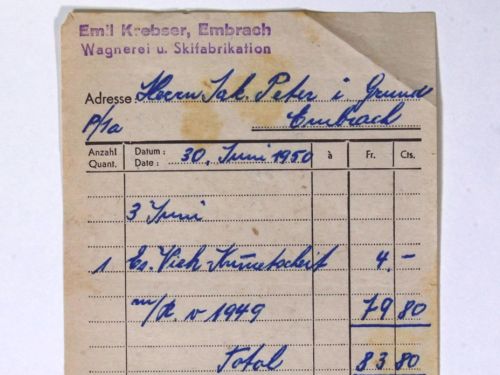 Emil Krebser, Embrach
Wagnerei u. Skifabrikation
Adresse: Herrn Jak. Peter i. Grund
P/Sa Embrach
Anzahl Quant. Datum: Date: 30. Juni 1950 à Fr. Cts.
3 Juni
1 Vieh- 4.-
m/R. v 1949 79 80
Total 83 80